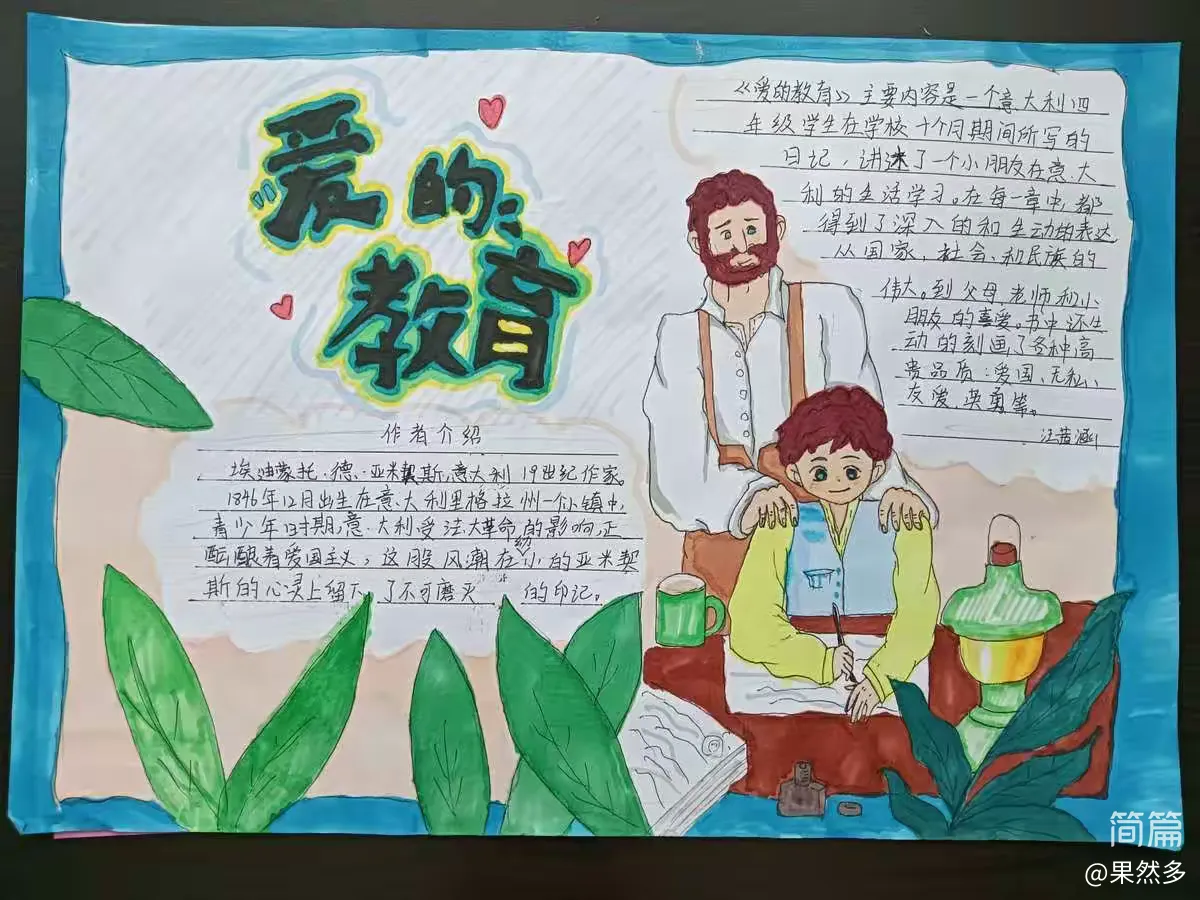 爱的
教育
《爱的教育》主要内容是一个意大利四
年级学生在学校十个月期间所写的
日记，讲述了一个小朋友在意大
利的生活学习。在每一章中，都
得到了深入的和生动的表达
从国家，社会、和民族的
伟大。到父母，老师和小
朋友的喜爱。书中还生
动的刻画了各种高
贵品质：爱国、无私、
友爱，英勇等。
作者介绍
埃迪蒙托·德·亚米契斯，意大利19世纪作家。
1846年12月出生在意大利里格拉州一个小镇中，
青少年时期，意大利受法大革命的影响，正
酝酿着爱国主义，这股风潮在幼小的亚米契
斯的心灵上留下了不可磨灭的印记。
简篇
@果然多